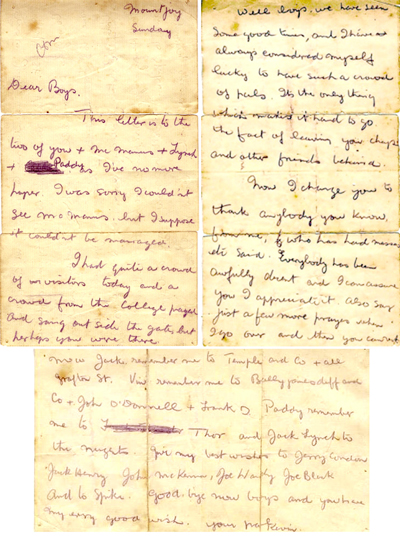 Mountjoy
Sunday
Dear Boys.
This letter is to the
two of you + Mc Manus + Lynch
+ Paddy as I've no more
paper. I was sorry I couldn't
see McManus. but I suppose
it couldn't be managed.
I had quite a crowd
of visitors today and a
crowd from the College prayed
and sang outside the gate, but
perhaps you were there.
Well boys, we have seen
some good times, and I have
always considered myself
lucky to have such a crowd
of pals. It's the only thing
which makes it hard to go
the fact of leaving you chaps
and other friends behind.
Now I charge you to
thank anybody you know,
from me, who has had masses
etc said. Everybody has been
awfully decent and I can assure
you I appreciate it also say
just a few more prayers when
I go over and then you can rest
Now Jack, remember me to Temple and Co + all
Grafton St. remember me to Ballyjamesduff and
Co + John O'Donnell + Frank D Paddy remember
me to Thor and Jack Lynch to
the Give my best wishes to Jerry
Jack Henry John McKenna, Joe Joe
And to Spike. Good-bye now boys and you have
my very good wish. your pal Kevin.